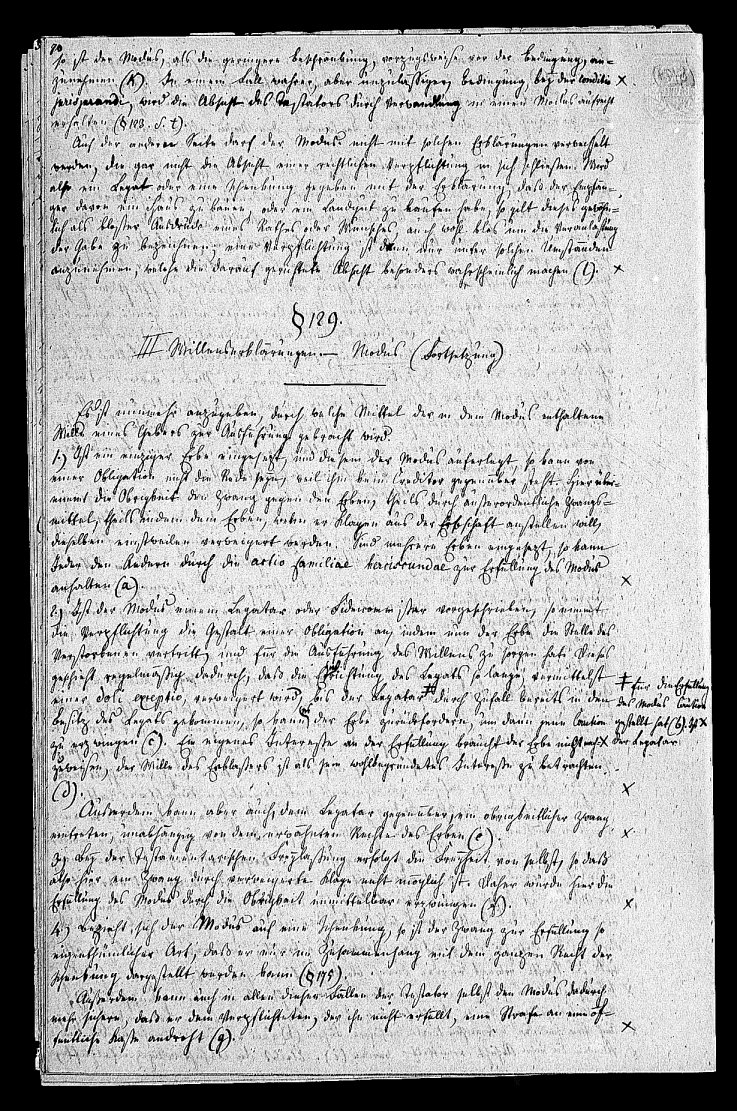 so ist der Modus, als die geringere Beschränkung, vorzugsweise vor der Bedingung, an-
zunehmen (k). In einem Fall wahrer, aber unzulässiger Bedingung, bey der conditio
jurisjurandi, wird die Absicht des Testators durch Verwandlung in einen Modus aufrecht
erhalten (§ 123. s. t).
Auf der anderen Seite darf der Modus nicht mit solchen Erklärungen verwechselt
werden, die gar nicht die Absicht einer rechtlichen Verpflichtung in sich schließen. Wird
also ein Legat oder eine Schenkung gegeben mit der Erklärung, daß der Empfän-
ger davon ein Haus zu bauen, oder ein Landgut zu kaufen habe, so gilt dieses gewöhn-
lich als bloßer Ausdruck eines Rathes oder Wunsches, auch wohl blos um die Veranlassung
der Gabe zu bezeichnen; eine Verpflichtung ist dann nur unter solchen Umständen
anzunehmen, welche die darauf gerichtete Absicht besonders wahrscheinlich machen (l). ×
§ 129.
III Willenserklärungen. — Modus (Fortsetzung)
Es ist nunmehr anzugeben, durch welche Mittel der in dem Modus enthaltene
Wille eines Gebers zur Ausführung gebracht wird.
1.) Ist ein einziger Erbe eingesetzt, und diesem der Modus auferlegt, so kann von
einer Obligation nicht die Rede seyn, weil ihm kein Creditor gegenüber steht. Hier über-
nimmt die Obrigkeit den Zwang gegen den Erben, theils durch außerordentliche Zwangs-
mittel, theils indem dem Erben, wenn er Klagen aus der Erbschaft anstellen will,
dieselben einstweilen verweigert werden. Sind mehrere Erben eingesetzt, so kann
Jeder den Andern durch die actio familiae herciscundae zur Erfüllung des Modus
anhalten (a). ×
2.) Ist der Modus einem Legatar oder Fideicommissar vorgeschrieben, so nimmt
die Verpflichtung die Gestalt einer Obligation an, indem nun der Erbe die Stelle des
Verstorbenen vertritt, und für die Ausführung des Willens zu sorgen hat. Dieses
geschieht regelmäßig dadurch, daß die Entrichtung des Legats so lange, vermittelst
einer doli exceptio, verweigert wird, bis der Legatar ǂ durch Zufall bereits in den
ǂ für die Erfüllung
des Modus Caution
gestellt hat (b). Ist
der Legatar
Besitz des Legats gekommen, so kann der Erbe zurückfordern, um dann jene Caution
zu erzwingen (c). Ein eigenes Interesse an der Erfüllung braucht der Erbe nicht nach-
zuweisen, der Wille des Erblassers ist als sein wohlbegründetes Interesse zu betrachten.
(d). ×
Außerdem kann aber auch, dem Legatar gegenüber, ein obrigkeitlicher Zwang
eintreten, unabhängig von dem erwähnten Rechte des Erben (e). ×
3.) Bey der testamentarischen Freylassung erfolgt die Freyheit von selbst, so daß
also hier ein Zwang durch verweigerte Klage nicht möglich ist. Daher wurde hier die
Erfüllung des Modus durch die Obrigkeit unmittelbar erzwungen (f). ×
4.) Bezieht sich der Modus auf eine Schenkung, so ist der Zwang zur Erfüllung so
eigenthümlicher Art, daß er nur im Zusammenhang mit dem ganzen Recht der
Schenkung dargestellt werden kann (§ 175).
Außerdem kann auch in allen diesen Fällen der Testator selbst den Modus dadurch
mehr sichern, daß er dem Verpflichteten, der ihn nicht erfüllt, eine Strafe an eine öf-
fentliche Kasse androht (g). ×